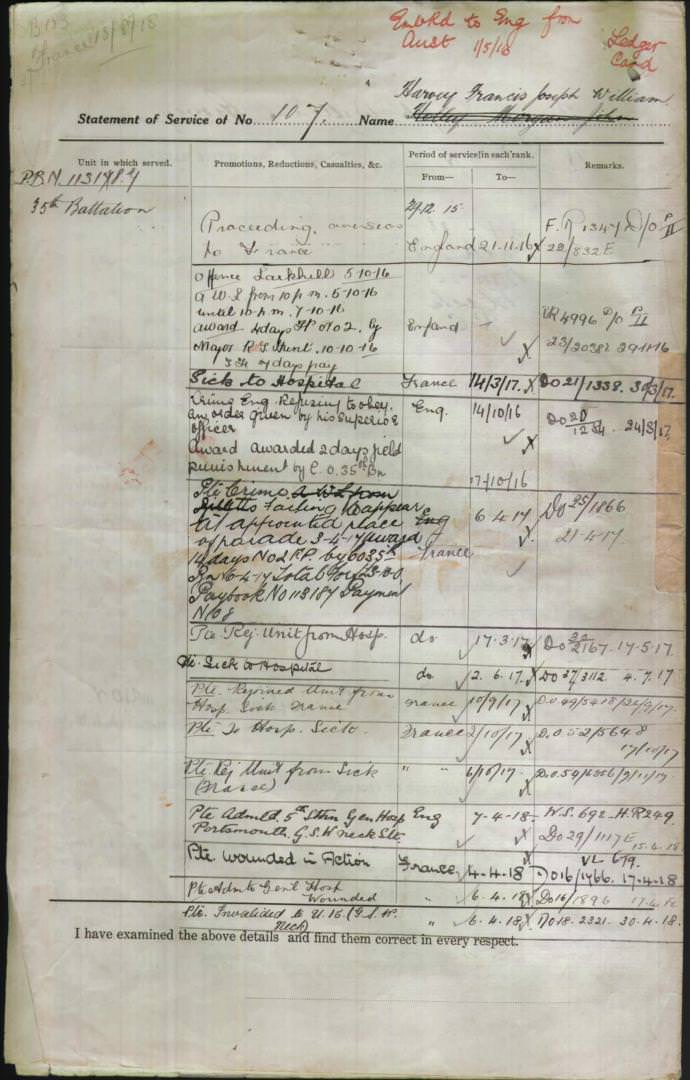 B103
France 13/5/18
Embkd to Eng from
Aust 1/5/18
Ledger
Card
Harvey Francis Joseph William
Statement of Service of No. 107. Name Holley Morgan John
Unit in which served.
Promotions, Reductions, Casualties, &c.
Period of service in each rank.
From—
To—
Remarks.
P.B.N. 113187
35th Battalion
2/12 15
Proceeding overseas
to France
England 21.11.16
22/832E
Offence Larkhill 5-10-16
A.W.L from 10 p.m. 5-10-16
until 10 p.m. 7-10-16
award 4 days FP No 2. by
Major R.S. Hunt. 10-10-16
7 days pay
England
4996 D/O PII
23/20382 29.11.16
Sick to Hospital France 14/3/17. DO 21/1338. 30/3/17.
Crime Eng. Refusing to obey
an order given by his superior
officer
Award Awarded 2 days field
punishment by C.O. 35th Bn
Eng. 14/10/16
17/10/16
24/3/17
Pte Crime A.W.L from
Billets Failing to appear
at appointed place
of parade 3-4-17 Award
14 days No 2 F.P. by CO 35th
Bn 6-4-17 Total Forf
Paybook No 113187 Payment
Eng
France
6 4 17
Do 25/1866
21-4-17.
Pte Rej. Unit from Hosp. do 17.3.17 17.5.17
Pte. Sick to Hospital do 2.6.17. DO 37/3112 4.7.17
Pte. Rejoined Unit from
Hosp Sick France France 10/9/17 D.O 49/5418
Pte To Hosp. Sick. France 2/10/17 D.O 52/5648
17/10/17
Pte. Rej Unit from Sick
(France) " " 6/10/17. D.O 54
Pte Admtd 5th Sthn Gen Hosp Eng 7-4-18 W.S. 692. H.R 249.
Portsmouth. G.S.W neck Sle. Do 29/1117E
15.4.18
Pte. Wounded in Action France 4.4.18 DO 16/1766. 17-4-18
Pte Admtd Genl Hosp
Wounded " 6.4.18 Do 16/1896
Pte. Invalided to U.K. (G.S.W.
Neck) " 6.4.18 DO 18. 2321. 30.4.18.
I have examined the above details and find them correct in every respect.